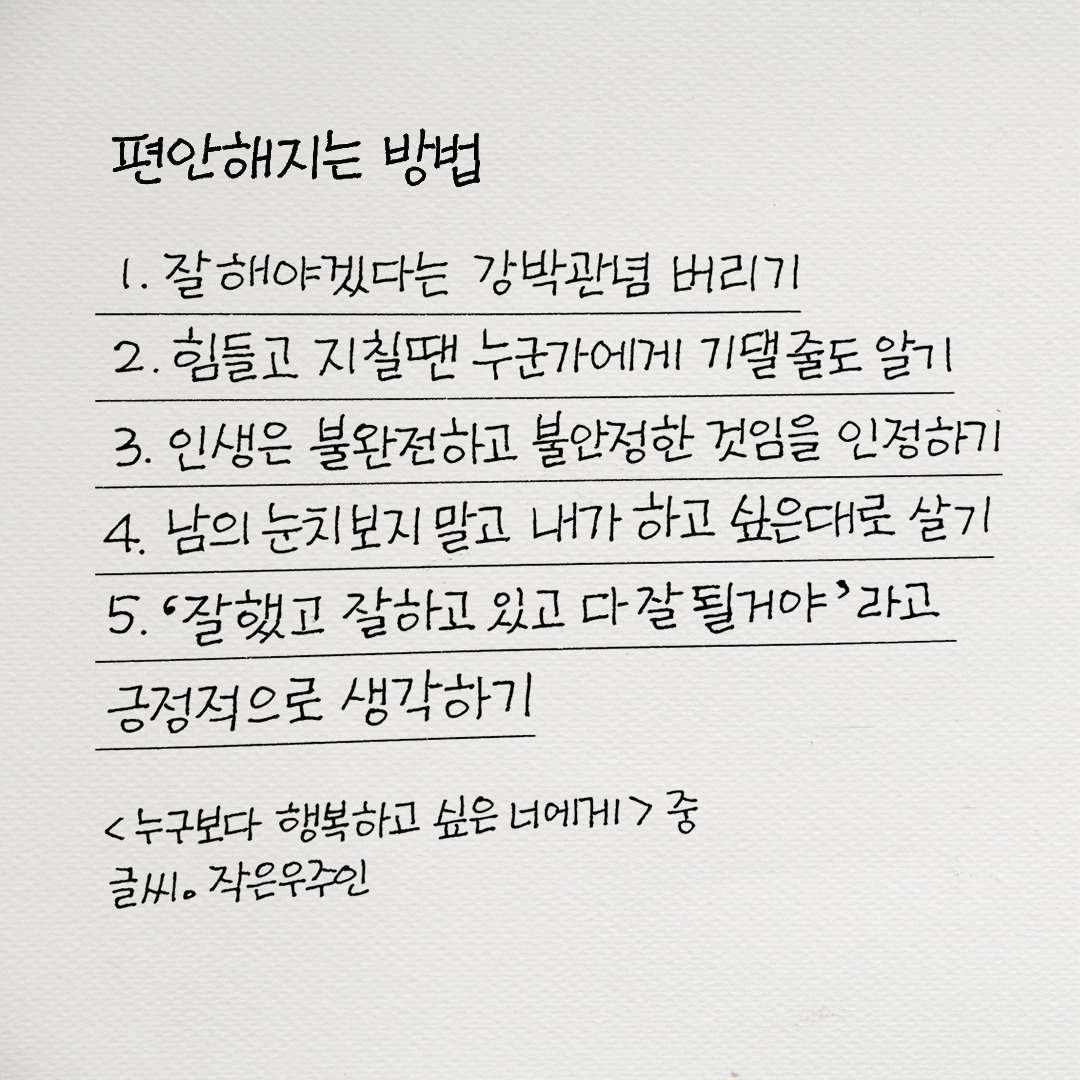 편안해지는 방법
1. 잘해야겠다는 강박관념 버리기
2. 힘들고 지칠땐 누군가에게 기댈줄도 알기
3. 인생은 불완전하고 불안정한 것임을 인정하기
4. 남의 눈치보지 말고 내가 하고 싶은대로 살기
5. ‘잘했고 잘하고 있고 다 잘 될거야’라고
긍정적으로 생각하기
<누구보다 행복하고 싶은 너에게> 중
글씨。작은우주인